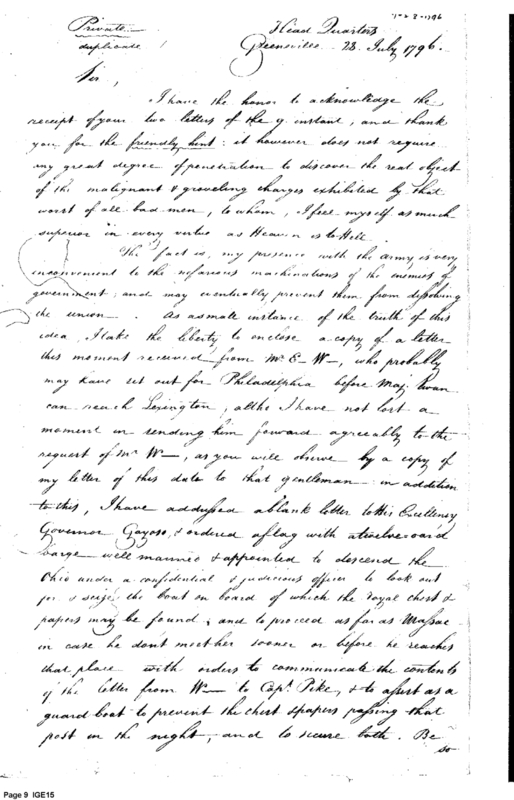 7-28-1796
Private
duplicate
Head Quarters
Greenville 28. July 1796.
Sir,
I have the honor to acknowledge the
receipt of your two letters of the 9. instant, and thank
you for the friendly hint: it however does not require
any great degree of penetration to discover the real object
of the malignant & groveling charges exhibited by that
worst of all bad men, to whom, I feel myself as much
superior in every virtue as Heaven is to Hell.
The fact is, my presence with the army is very
inconvenient to the nefarious machinations of the enemies of
government, and may eventually prevent them from dissolving
the union. As a mate instance of the truth of this
idea, I take the liberty to enclose a copy of a letter
this moment received from Mr. E— W—, who probably
may have set out for Philadelphia before Maj. Swan
can reach Lexington, altho I have not lost a
moment in sending him forward agreeably to the
request of Mr W—, as you will observe by a copy of
my letter of this date to that gentleman: in addition
to this, I have addressed a blank letter to His Excellency
Governor Gayoso, & ordered a flag with a twelve oar'd
barge well manned & appointed to descend the
Ohio under a confidential & judicious officer to look out
for & seize the boat on board of which the royal chest &
papers may be found; and to proceed as far as Massac
in case he don't meet her sooner or before he reaches
that place with orders to communicate the contents
of the letter from W— to Capt. Pike, & to assist as a
guard boat to prevent the chest & papers passing that
post in the night, and to secure both. Be
so
Page 9 IGE15